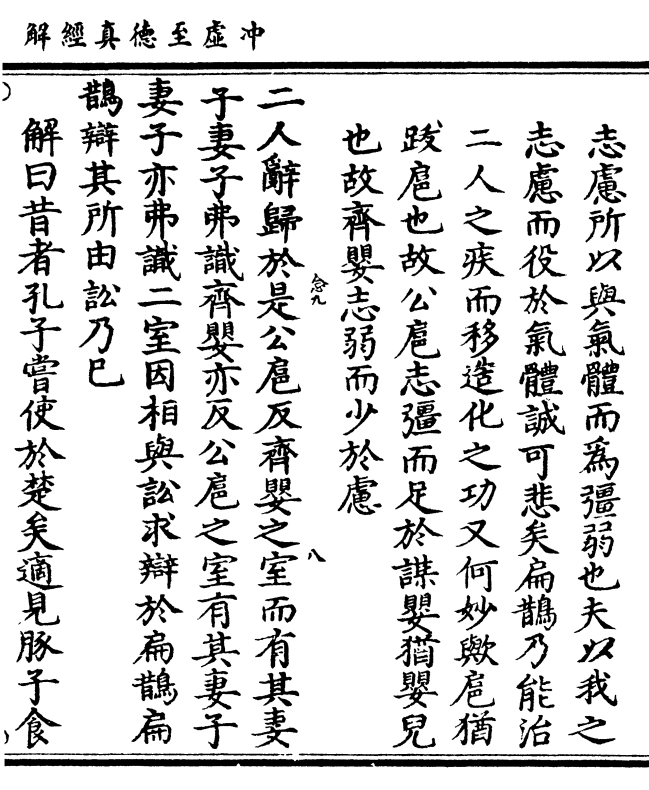 冲虛至德真經解
志慮所以與氣體而為彊弱也夫以我之
志慮而役於氣體誠可悲矣扁鵲乃能治
二人之疾而移造化之功又何妙歟扈猶
跋扈也故公扈志彊而足於謀嬰猶嬰兒
也故齊嬰志弱而少於慮
念九
八
二人辭歸於是公扈反齊嬰之室而有其妻
子妻子弗識齊嬰亦反公扈之室有其妻子
妻子亦弗識二室因相與訟求辯於扁鵲扁
鵲辯其所由訟乃巳
解曰昔者孔子嘗使於楚矣適見豚子食